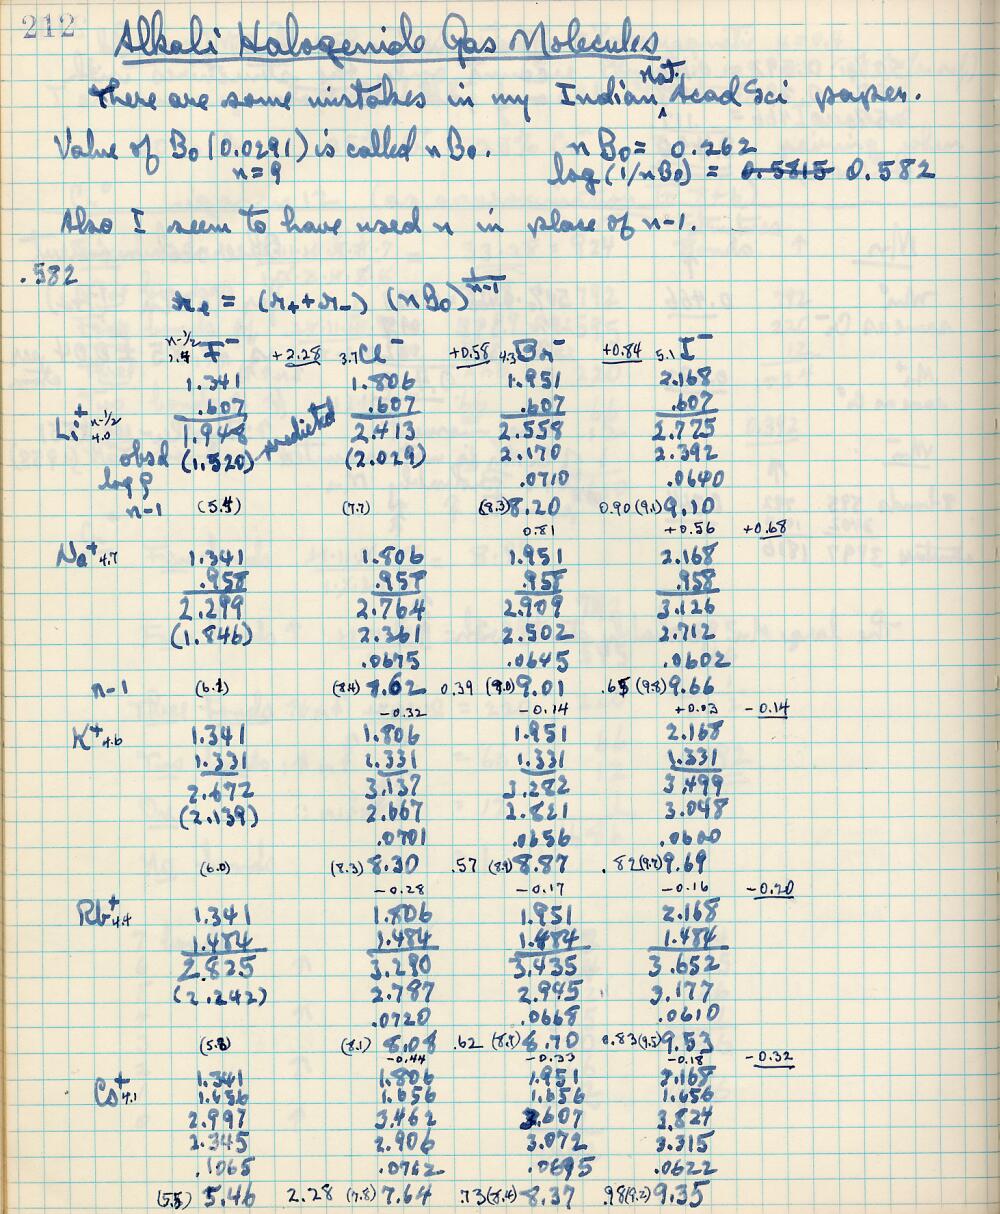 212
Alkali Halogenide Gas Molecules
There are some mistakes in my Indian Nat. Acad Sci paper.
Value of B₀ (0.0291) is called nB₀. nB₀ = 0.262
n=9 log(1/nB₀) = 0.5815 0.582
Also I seem to have used n in place of n-1.
.582
rₑ = (r₊+r₋) (nB₀)^(1/(n-1))
n-1/2 F⁻ +2.28 3.7 Cl⁻ +0.58 4.3 Br⁻ +0.84 5.1 I⁻
1.341 1.806 1.951 2.168
.607 .607 .607 .607
Li⁺ n-1/2 4.0 1.948 2.413 2.558 2.775
obsd (1.520) predicted (2.029) 2.170 2.392
log ρ .0710 .0640
n-1 (5.4) (7.7) (8.3) 8.20 0.90 (9.1) 9.10
0.81 +0.56 +0.68
Na⁺ 4.7 1.341 1.806 1.951 2.168
.958 .957 .958 .958
2.299 2.764 2.909 3.126
(1.846) 2.361 2.502 2.712
.0675 .0645 .0602
n-1 (6.1) (8.4) 8.62 0.39 (9.0) 9.01 .65 (9.8) 9.66
-0.32 -0.14 +0.03 -0.14
K⁺ 4.6 1.341 1.806 1.951 2.168
1.331 1.331 1.331 1.331
2.672 3.137 3.282 3.499
(2.139) 2.667 2.821 3.048
.0701 .0656 .0600
(6.0) (8.3) 8.30 .57 (8.9) 8.87 .82 (9.7) 9.69
-0.28 -0.17 -0.16 -0.20
Rb⁺ 4.4 1.341 1.806 1.951 2.168
1.484 1.484 1.484 1.484
2.825 3.290 3.435 3.652
(2.242) 2.787 2.945 3.177
.0720 .0668 .0610
(5.8) (8.1) 8.08 .62 (8.7) 8.70 0.83 (9.5) 9.53
-0.44 -0.33 -0.18 -0.32
Cs⁺ 4.1 1.341 1.806 1.951 2.168
1.656 1.656 1.656 1.656
2.997 3.462 3.607 3.824
2.345 2.906 3.072 3.315
.1065 .0762 .0695 .0622
(5.5) 5.46 2.28 (7.8) 7.64 .73 (8.4) 8.37 .98 (9.2) 9.35